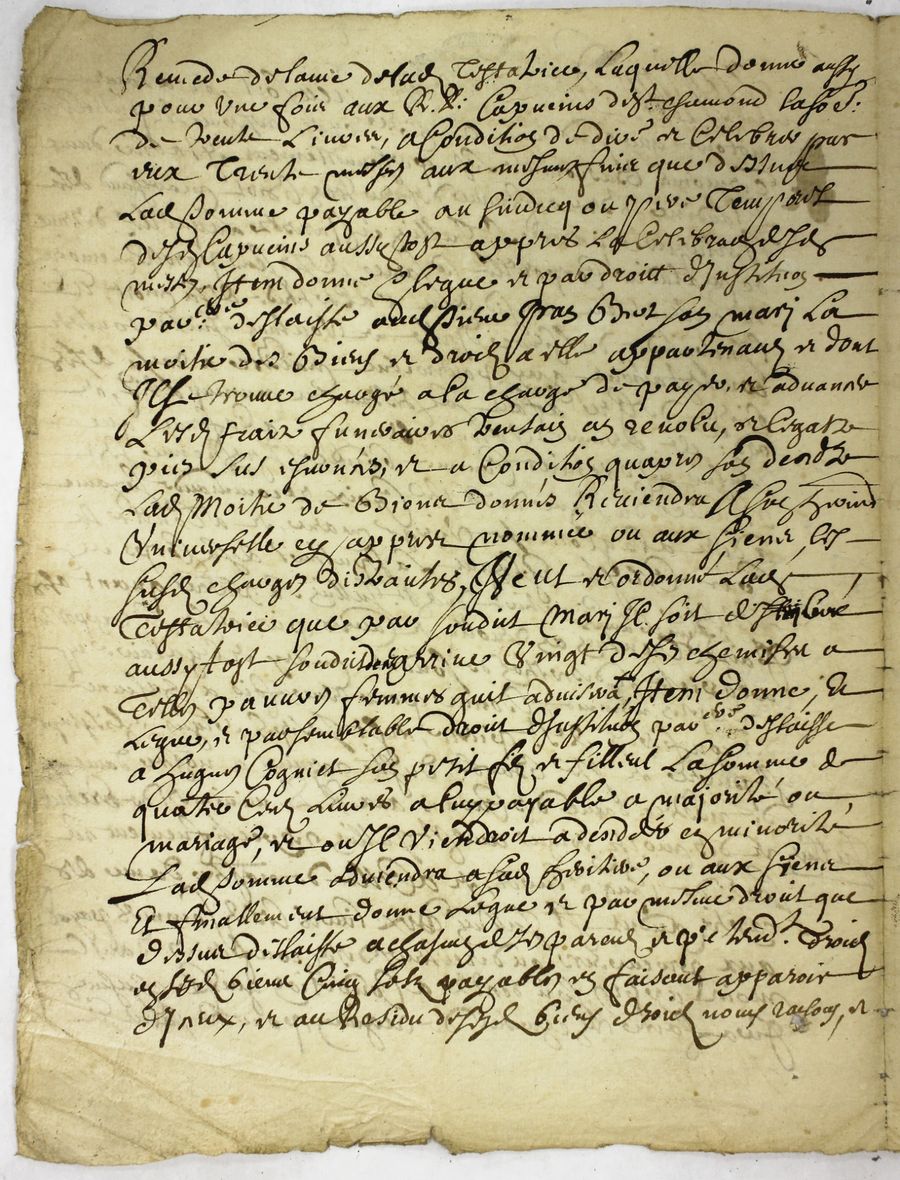 Remede de lame de lad Testatrice, Laquelle donne aussy
pour une fois aux R. P. Capucins de St chamond la so.e
de trente Livres, a Condition de dire et Celebrer par
eux Trente messes aux mesmes fins que dessus
Lad somme payable au sindicq ou pere Temporel
desd Capucins aussytost appres La Celebraon desd
messes, Item donne legue et par droict dInstitution
par.re deslaisse aud sieur Fran Biot son mary La
moitie des Biens et droicts a elle appartenans et dont
Il se trouve chargé a la charge de payer, et advancer
Lesd fraix funeraires an revolu, et legatz
pies sus enoncés, et a Condition quapres son decedz
Lad Moitie de Biens donnés Reviendra A son heritiere
Universelle cy appres nommée ou aux siens, les
susd charges distraites, Veut et ordonne Lad
Testatrice que par sondict Mary Il soit deslivré
aussytost sondict Vingt de ses chemises a
Telles pauvres femmes quil advisera, Item donne, et
Legue, et par semblable droict dInstitution par.re deslaisse
a hugues Cogniet son petit fils et filleul La somme de
quatre Cens Livres a luy payable a majorité ou
mariage, et ou Il Viendroit a deceder en minorité
Lad somme adviendra a sad heritiere, ou aux siens
Et finallement donne Legue et par mesme droict que
dessus deslaisse a chascung de ses parens et p.etend.t droict
en sesd biens Cinq solz payables en faisant apparoir
dIceux, et au Residu de sesd biens droicts noms raisons, et